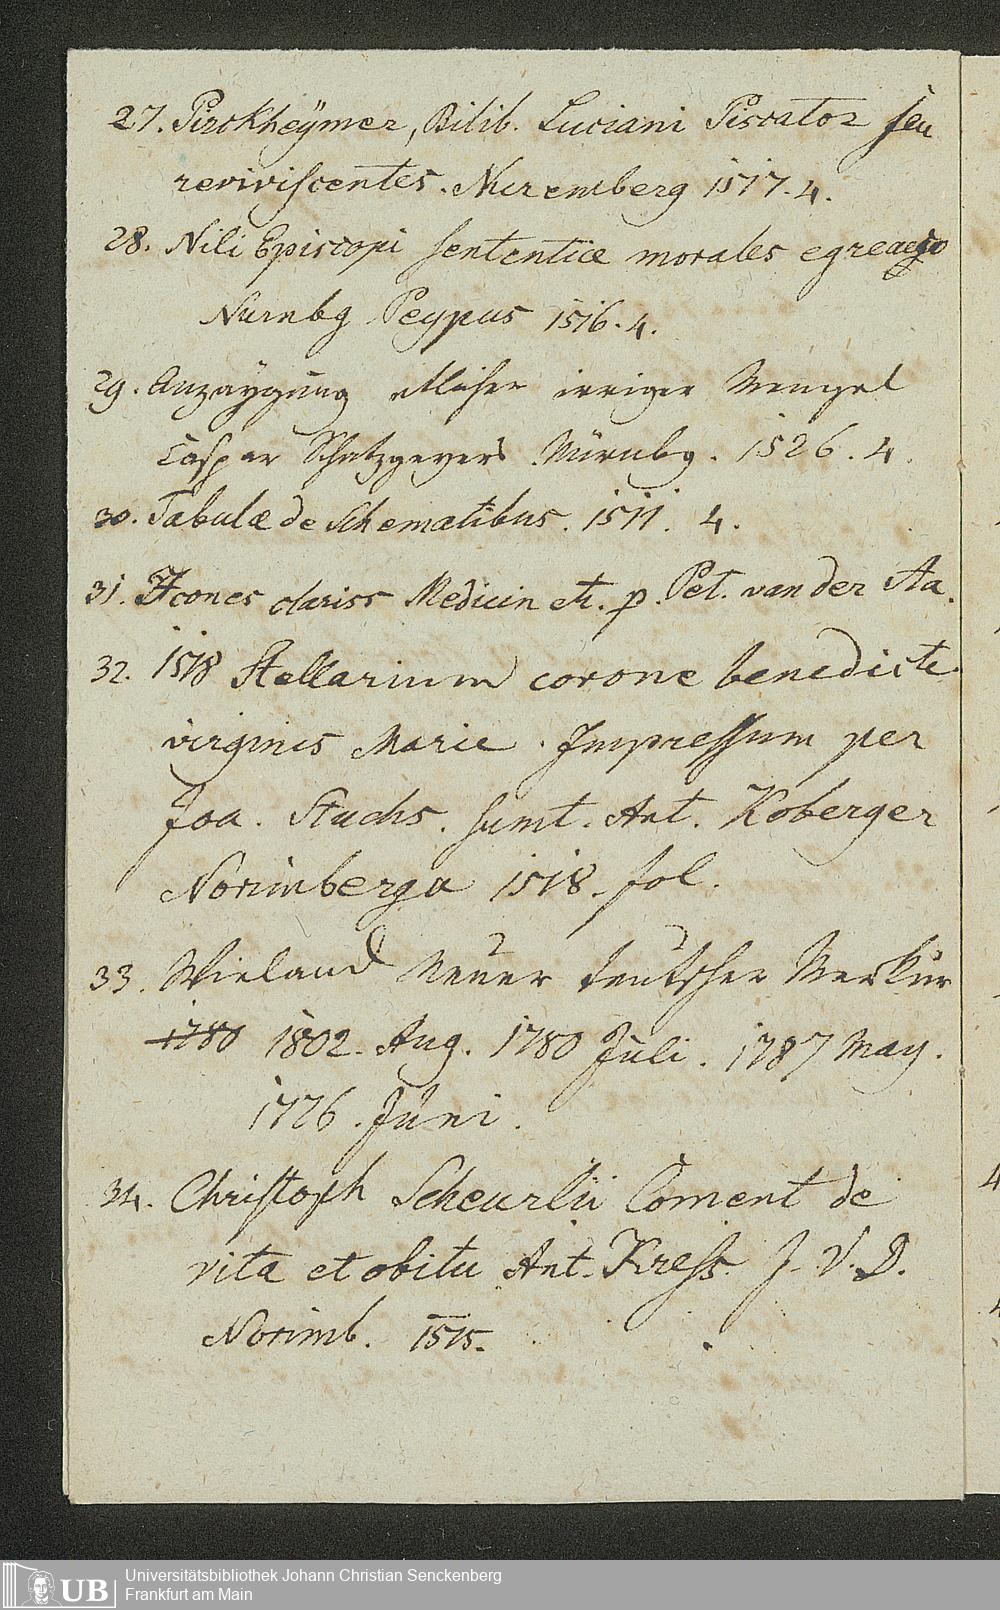 27. Pirckheÿmer, Bilib. Luciani Piscator seu
reviviscentes. Nuremberg 1517. 4.
28. Nili Episcopi sententiæ morales e græco
Nurnbg Peypus 1516. 4.
29. Anzaÿgung etlicher irriger Mengel
Caspar Schatzgeyers Nürnbg. 1526. 4.
30. Tabulæ de Schematibus. 1511. 4.
31. Icones clariss Medicin etc. p. Pet. van der Aa.
32. 1518 Stellarium corone benedicte
virginis Marie. Impressum per
Joa. Stuchs. sumt. Ant. Koberger
Norimberga 1518. fol.
33. Wieland Neuer teutscher Merkur
1780 1802. Aug. 1780 Juli. 1787 May.
1776. Juni.
34. Christoph Scheurlii Coment de
vita et obitu Ant. Kress J. V. D.
Norimb. 1515.
UB Universitätsbibliothek Johann Christian Senckenberg
Frankfurt am Main